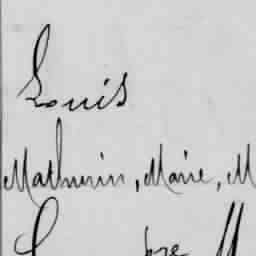 Louis
Mathurin, Marie, M